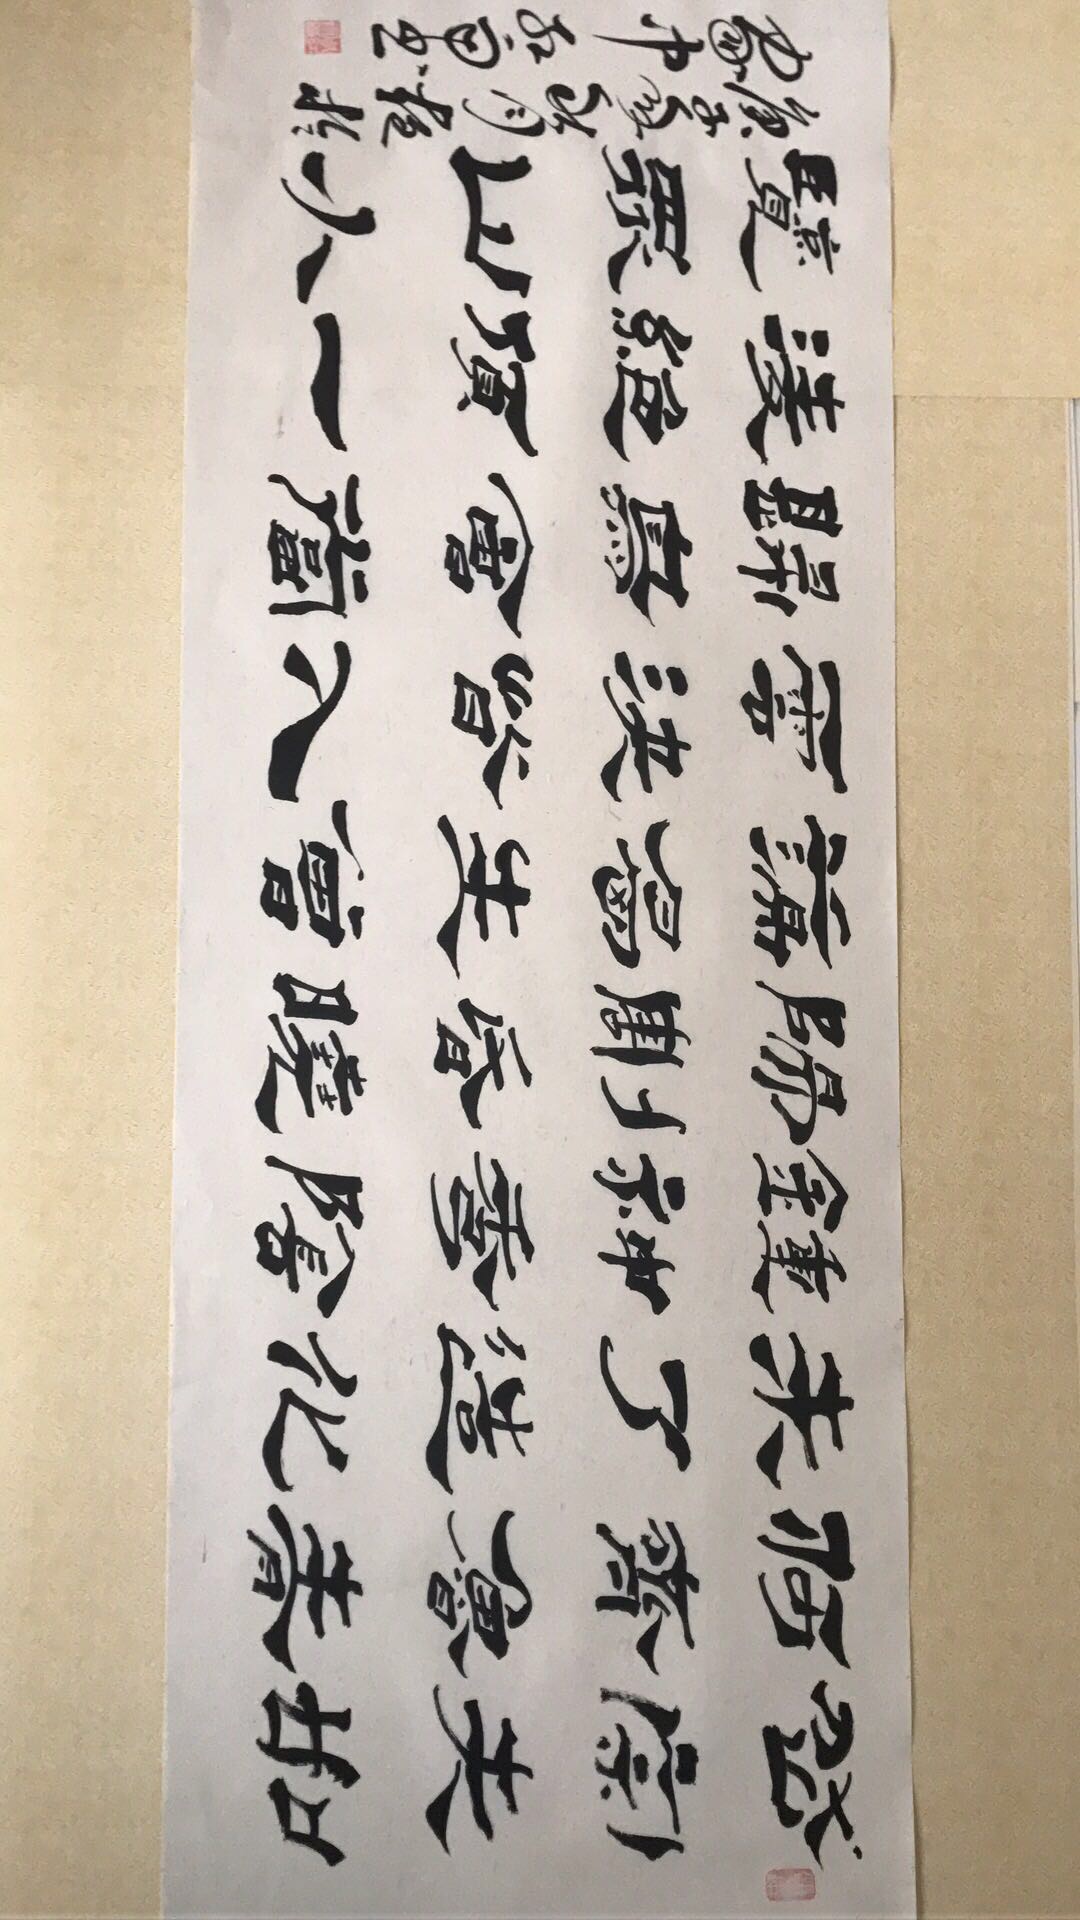 岱宗夫如
何齊魯青
未了造化
鍾神秀陰
陽割昏曉
蕩胸生曾
雲決眥入
歸鳥會當
凌絕頂一
覽眾山小